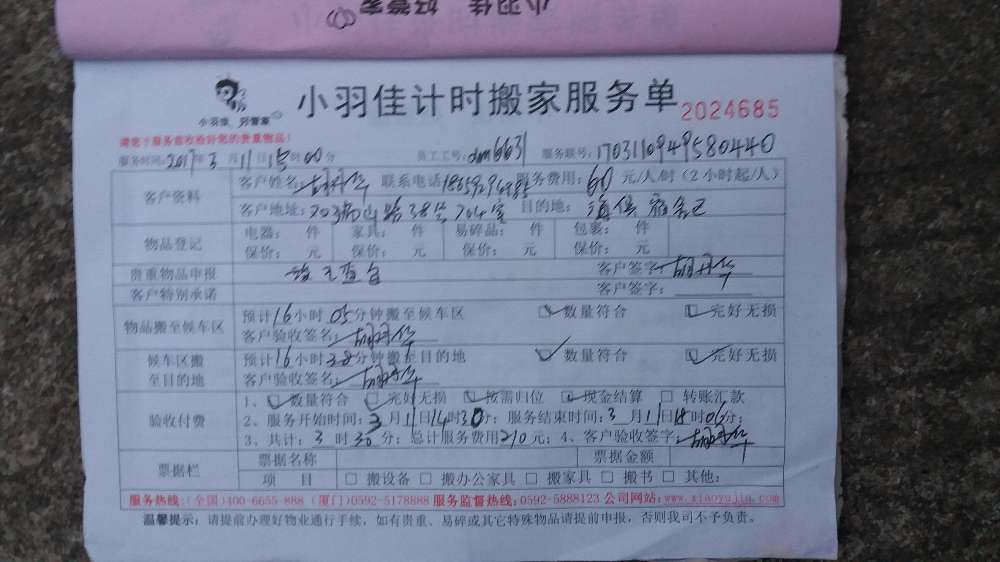 小羽佳 好管家
小羽佳计时搬家服务单
2024685
小羽佳，好管家
请您于服务前收检好您的贵重物品!
服务时间: 2017年3月11日 时00分 员工工号: 6631 服务联号: 1703110949580440
客户资料 客户姓名: 联系电话 服务费用: 60元/人/时（2小时起/人）
客户地址: 704室 目的地:
物品登记 电器: 件 家具: 件 易碎品: 件 包裹: 件
保价: 元 保价: 元 保价: 元 保价: 元
贵重物品申报 客户签字:
客户特别承诺 客户签字:
物品搬至候车区 预计16小时05分钟搬至候车区 数量符合 完好无损
客户验收签名:
候车区搬至目的地 预计16小时38分钟搬至目的地 数量符合 完好无损
客户验收签名:
验收付费 1、数量符合 完好无损 按需归位 现金结算 转账汇款
2、服务开始时间: 3月11日14时30分; 服务结束时间: 3月11日18时06分;
3、共计: 3时30分; 总计服务费用210元; 4、客户验收签字:
票据栏 票据名称 票据金额
项 目 搬设备 搬办公家具 搬家具 搬书 其他:
服务热线:(全国)400-6655-888 (厦门)0592-5178888 服务监督热线:0592-5888123 公司网站:www.xiaoyujia.com
温馨提示: 请提前办理好物业通行手续，如有贵重、易碎或其它特殊物品请提前申报，否则我司不予负责。